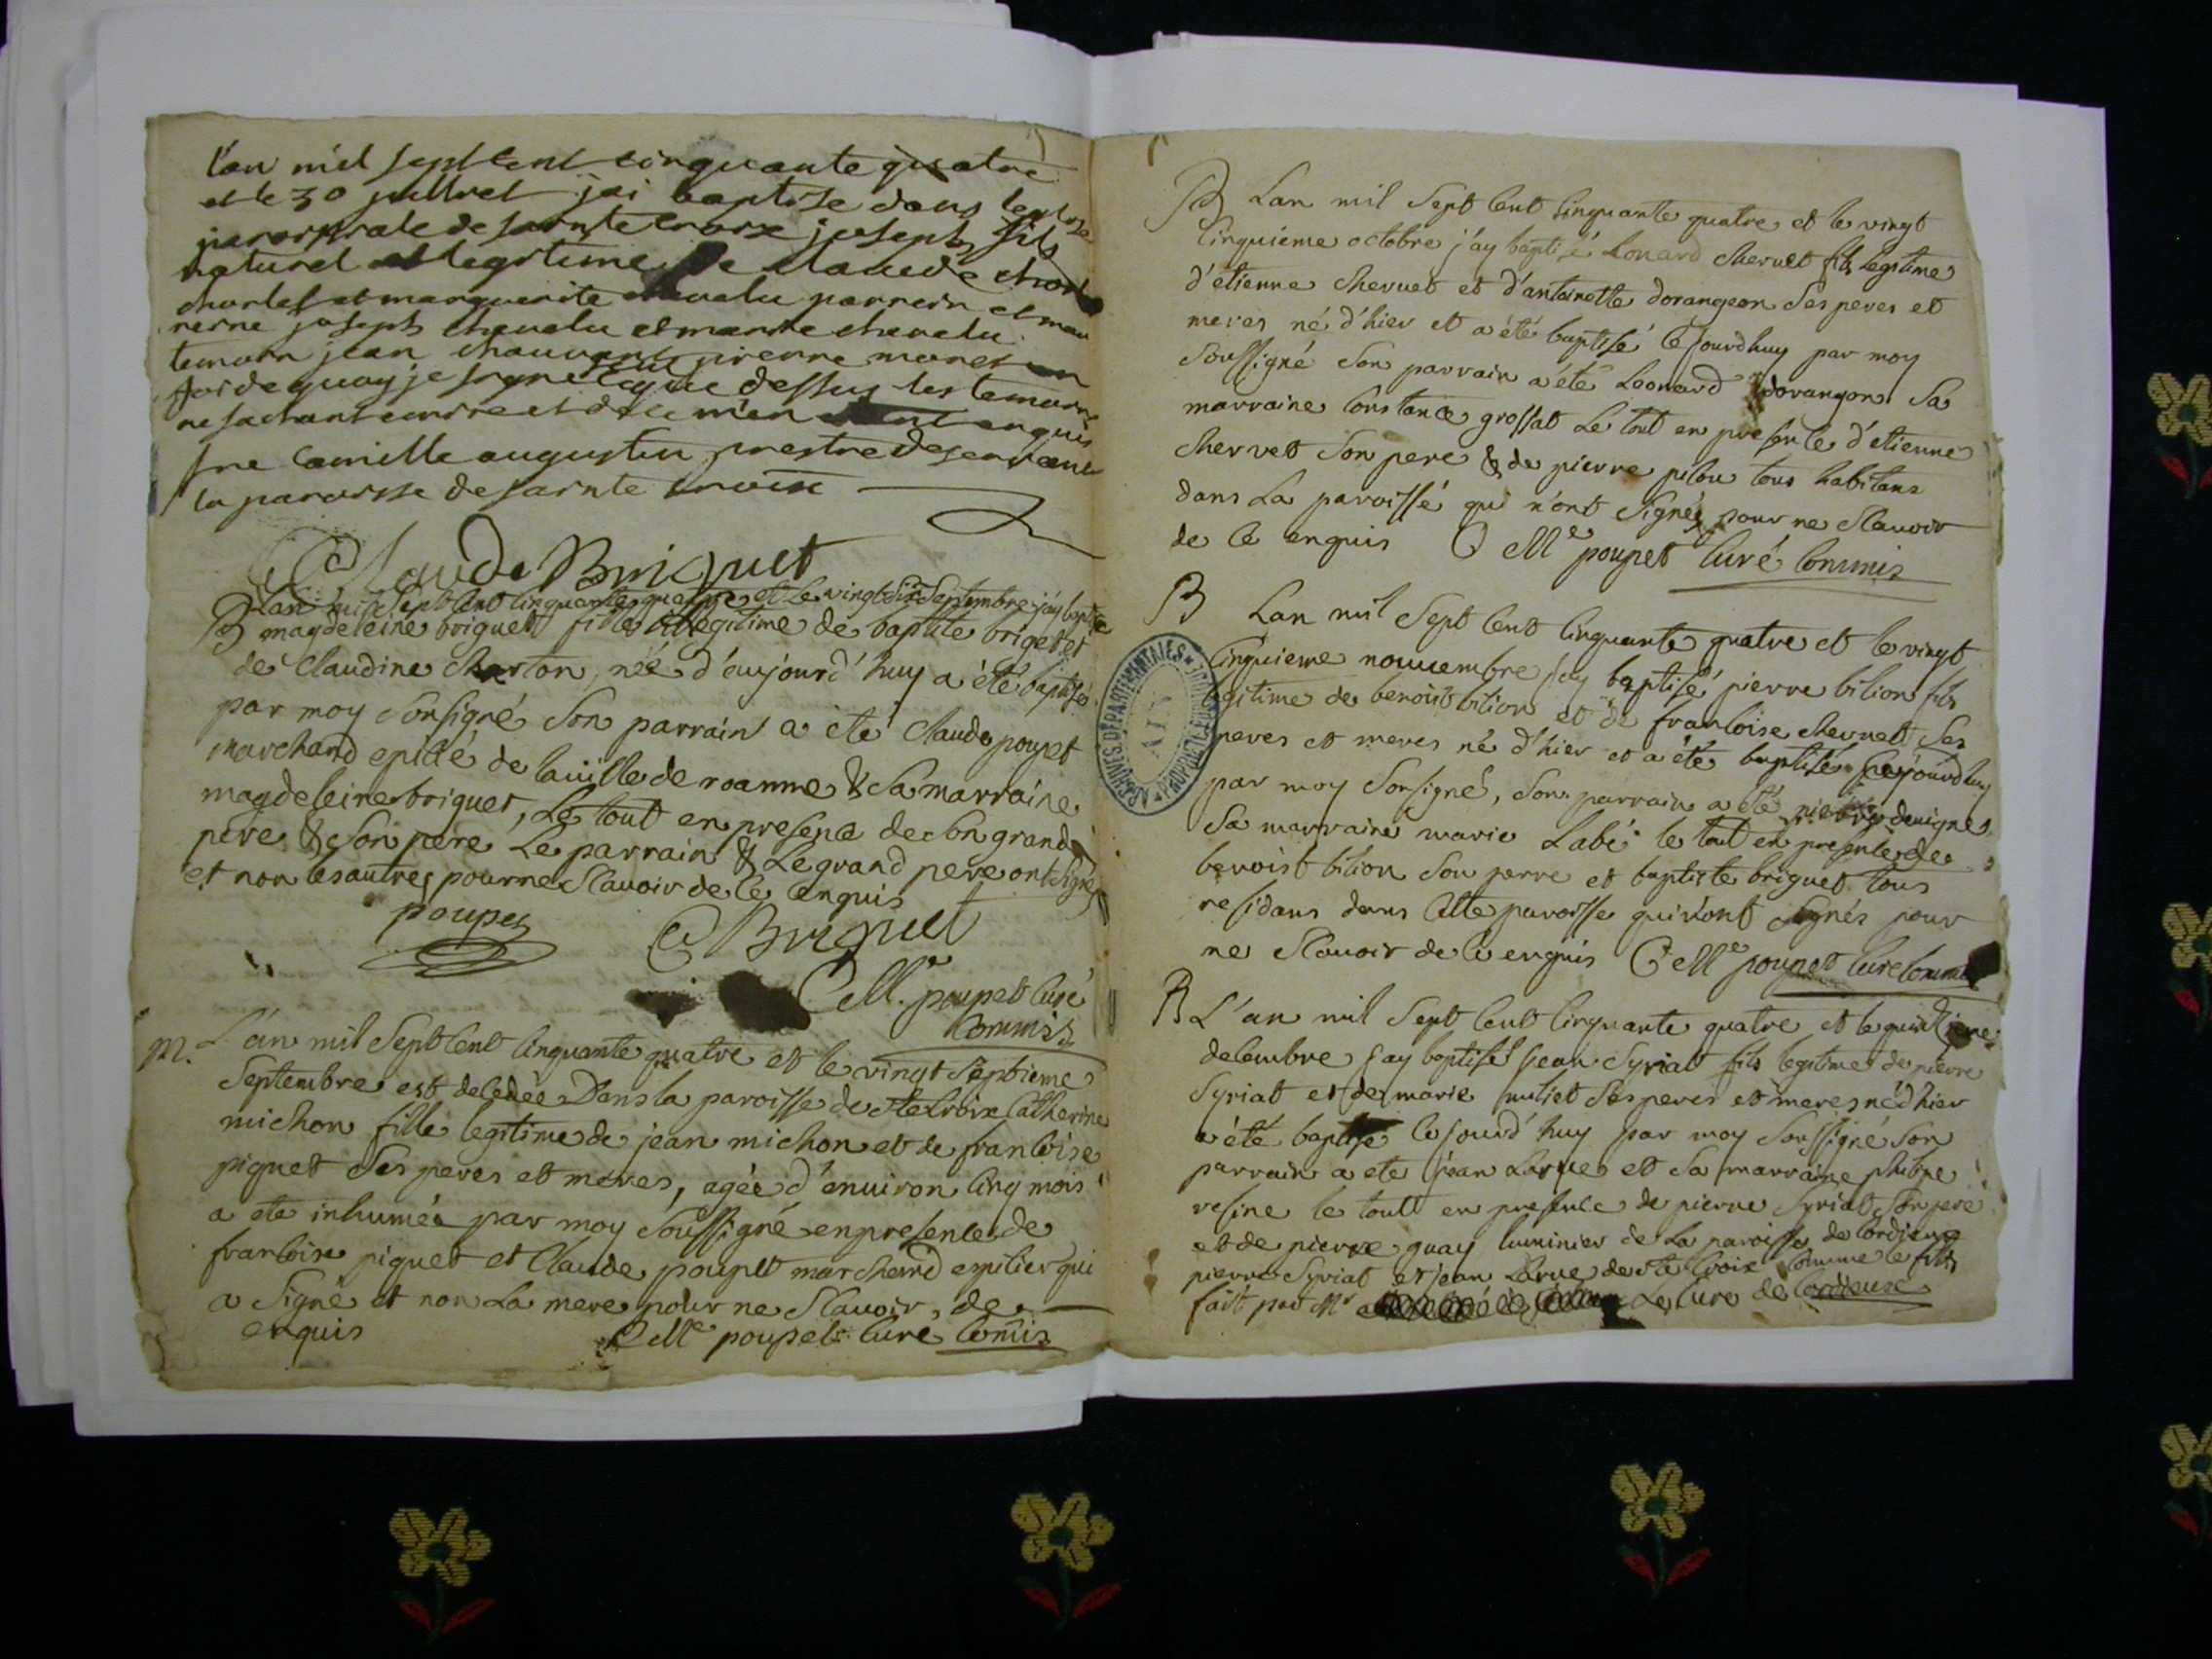 l'an mil sept cent cinquante quatre
et le 30 juillet jai baptise dans leglise
parorssiale de sainte croix joseph fils
naturel et legitime de claude
charles et marguerite chevalu parrein et mar
reine joseph chevalu et marie chevalu
temoin jean chauvent pierre moret en
foi de quoy je signe que dessus les temoins
ne sachant ecrire et de ce m'en enquis
fre Camille augustin prestre deservant
la parorsse de sainte croix
Claude Briquet
B lan mil sept cent cinquante quatre et le vingt six Septembre j'ay baptisé
magdeleine briguet fille legitime de baptiste briget et
de Claudine Charton, née d'aujourd'huy a été baptisée
par moy sousigné son parrain a été Claude poupet
marchand epicié de la ville de roanne & sa marraine
magdeleine briguet, Le tout en presence de son grand
pere & son pere Le parrain & Le grand pere ont signé
et non les autres pour ne scauoir de ce enquis
poupet
C Briquet
C Mle. poupet curé
Commis
M. L'an mil Sept cent cinquante quatre et le vingt septieme
Septembre est decedée Dans la paroisse de Ste Croix Catherine
michon fille legitime de jean michon et de francoise
piquet ses peres et meres, agée d'enuiron cinq mois
a ete inhumée par moy soussigné en presence de
francoise piquet et Claude poupet marchand epicier qui
a signé et non La mere pour ne scauoir, de
enquis C Mle poupet curé Comis
B Lan mil Sept cent cinquante quatre et le vingt
cinquieme octobre j'ay baptisé Lonard Cheruet fils legitime
d'etienne Cheruet et d'antoinette dorangeon ses peres et
meres né d'hier et a été baptisé ce jourdhuy par moy
soussigné son parrain a été Leonard dorangon Sa
marraine Constance grossat Le tout en presence d'etienne
Chervet son pere & de pierre pilou tous habitans
dans La paroisse qui n'ont signés pour ne scauoir
de ce enquis C Mle poupet curé Commis
B Lan mil Sept cent cinquante quatre et le vingt
cinquieme nouuembre j'ay baptisé pierre bilion fils
legitime de benoist bilion et de francoise cheruet ses
peres et meres né d'hier et a été baptisé cejourdhuy
par moy sousigné, son parrain a été pierre deuignes
Sa marraine marie Labé le tout en presence de
benoist bilion son perre et baptiste briguet tous
residans dans cette paroisse qui n'ont signés pour
ne scauoir de ce enquis C Mle poupet curé Commis
B L'an mil Sept cent cinquante quatre et le quinzieme
decembre j'ay baptisé jean Syriat fils legitime de pierre
Syriat et de marie ses peres et meres né d'hier
a été baptisé ce jourd'huy par moy soussigné son
parrain a ete jean Larue et sa marraine
resine le tout en presence de pierre Syriat son pere
et de pierre guay luminier de La paroisse de Cordieux
pierre Syriat et jean Larue de ste Croix Comme le fils
fait par Mr Le curé de Cordieux
ARCHIVES DÉPARTEMENTALES
AIN